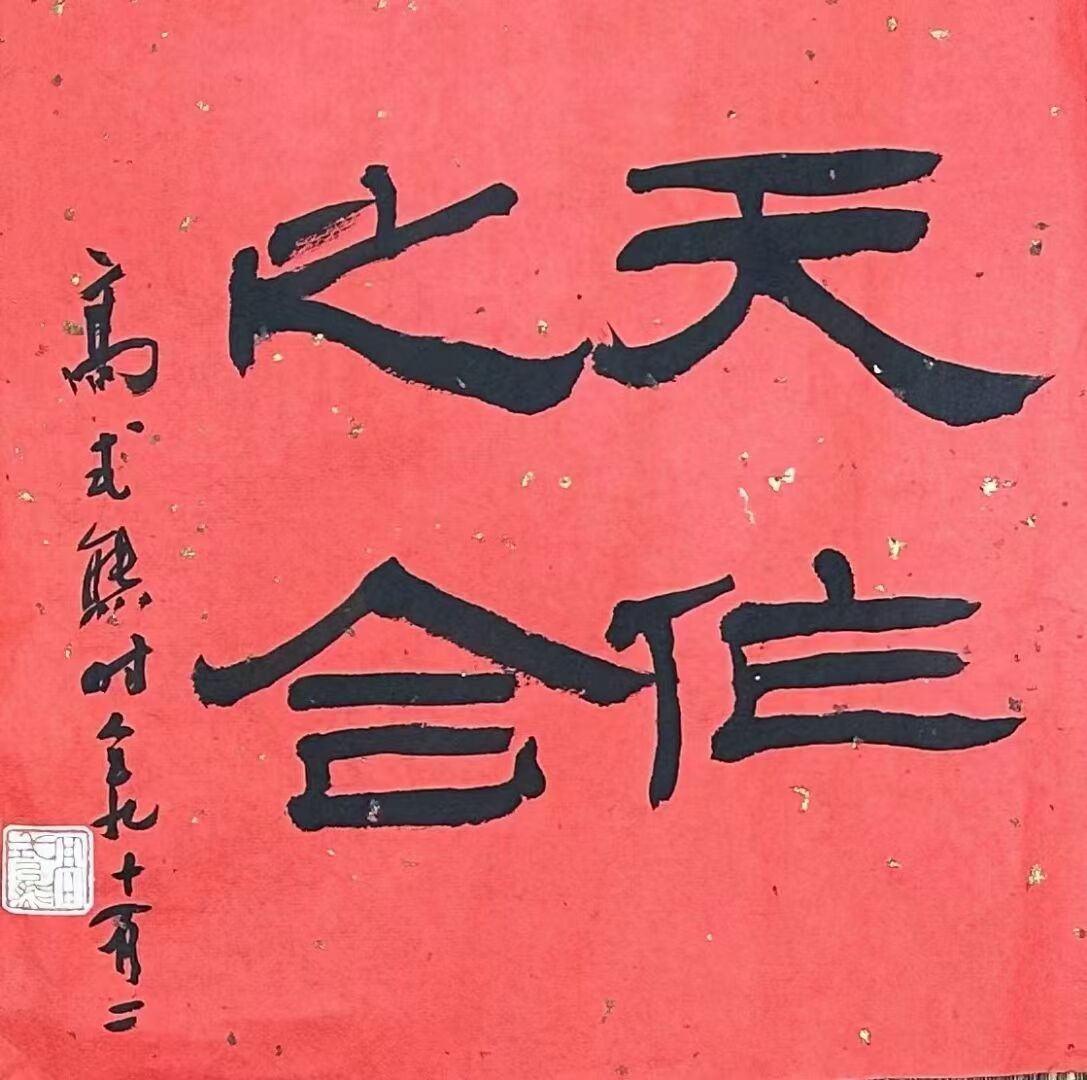 天作
之合
高式熊时年九十有二